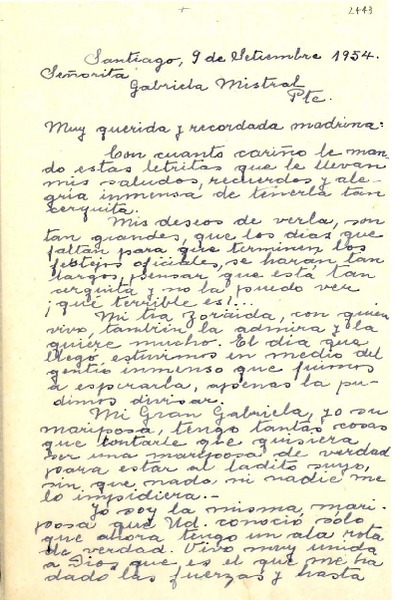 2443
Santiago, 9 de Setiembre 1954.
Señorita
Gabriela Mistral
Pte.
Muy querida y recordada madrina:
Con cuanto cariño le man-
do estas letritas que le llevan
mis saludos, recuerdos y ale-
gría inmensa de tenerla tan
cerquita.
Mis deseos de verla, son
tan grandes, que los días que
faltan para que terminen los
festejos oficiales, se harán tan
largos, pensar que está tan
cerquita y no la puedo ver
¡qué terrible es!...
Mi tía Zoraida, con quien
vivo, también la admira y la
quiere mucho. El día que
llegó, estuvimos en medio del
gentío inmenso que fuimos
a esperarla, apenas la pu-
dimos divisar.
Mi Gran Gabriela, yo su
mariposa, tengo tantas cosas
que contarle que quisiera
ser una mariposa de verdad
para estar al ladito suyo,
sin que nada ni nadie me
lo impidiera.-
Yo soy la misma mari-
posa que Ud. conoció sólo
que ahora tengo un ala rota
de verdad. Vivo muy unida
a Dios que es el que me ha
dado las fuerzas y hasta